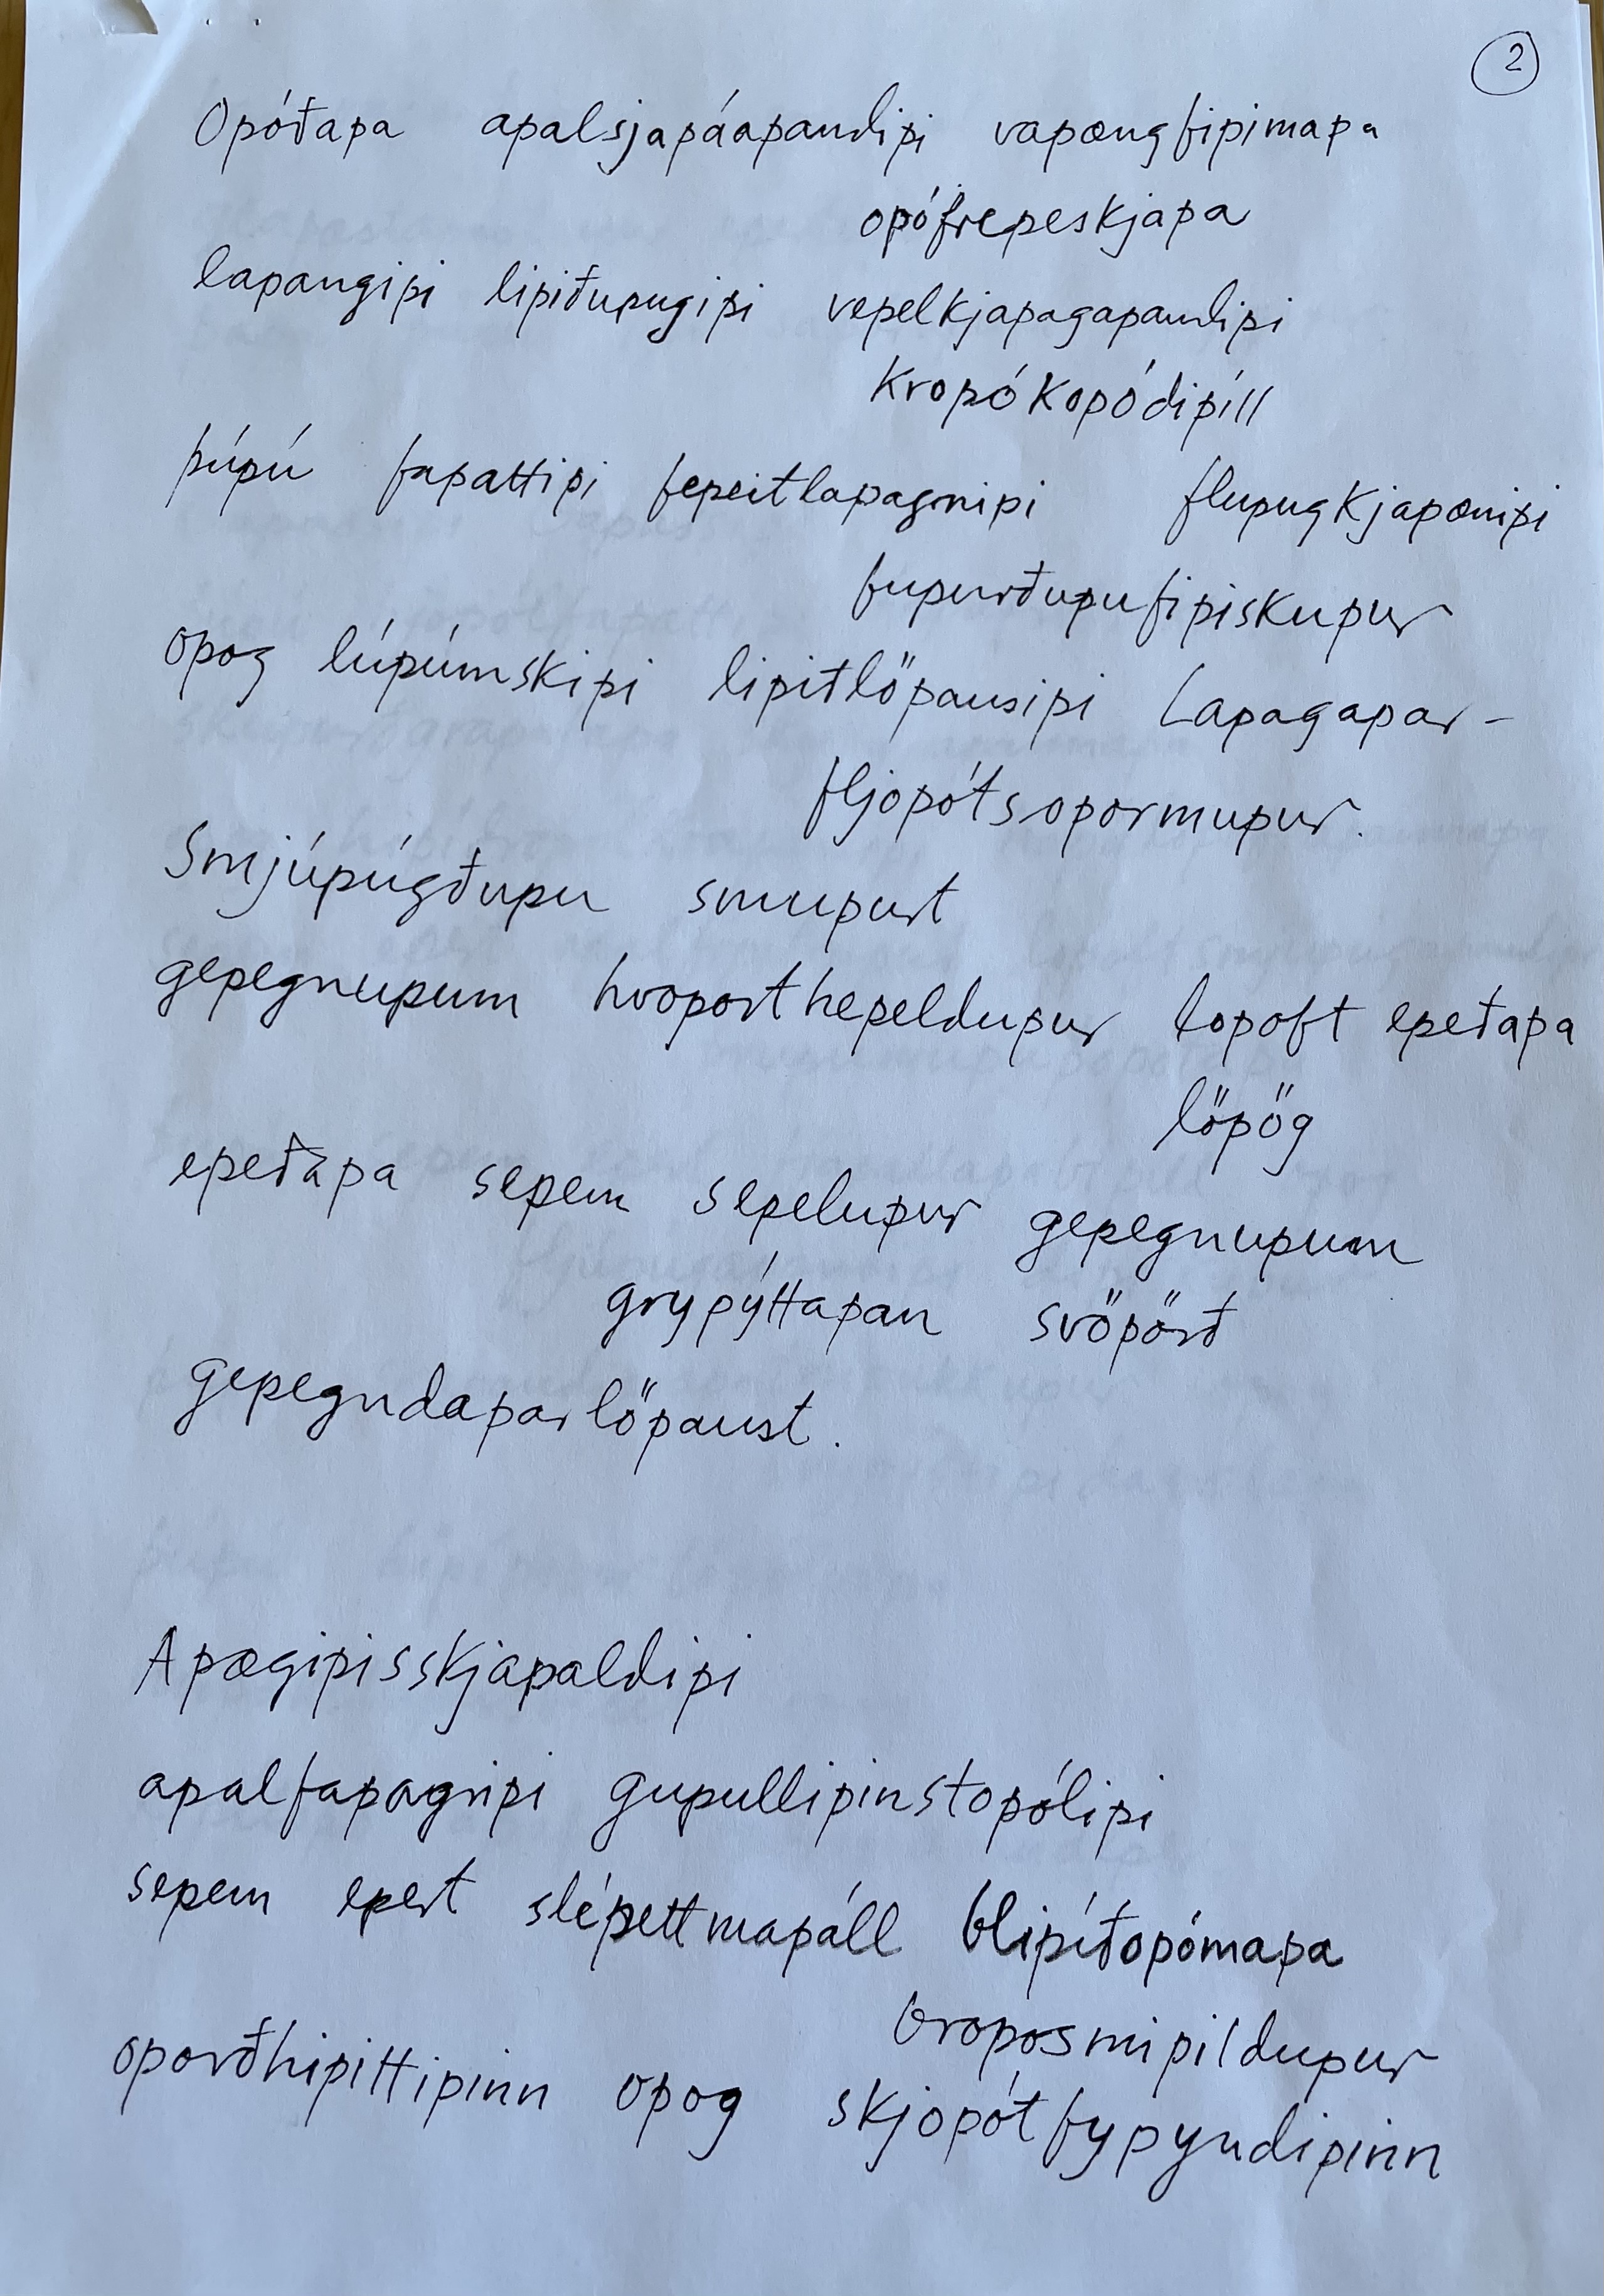 2
Opóðapa apalsjapáapandipi vapængfipimapa
opófrepeskjapa
lapangipi lipiðupugipi vepelkjapagapandipi
kropókopódipíll
þúpú fapattipi fepeitlapagnipi flupugkjapænipi
fupurðupufipiskupur
opog lúpúmskipi lipitlöpausipi lapagapar-
fljopótsopormupur.
Smjúpúgðupu smupurt
gepegnupum hvoporthepeldupur lopoft epeðapa
löpög
epeðapa sepem sepelupur gepegnupum
grypýttapan svöpörð
gepegndaparlöpaust.
Apægipisskjapaldipi
apalfapagripi gupullipinstopólipi
sepem epert slépettmapáll blipíðopómapa
broposmipildupur
oporðhipittipinn opog skjopótfypyndipinn